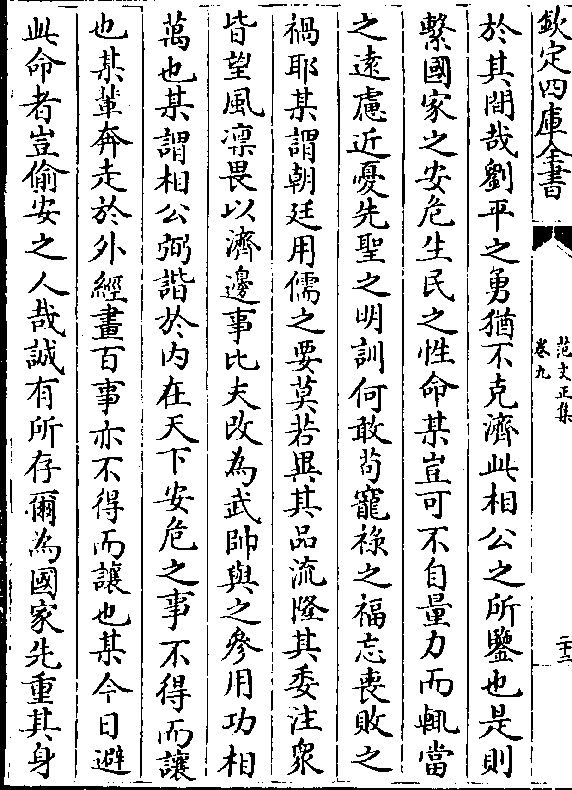 欽定四庫全書
范文正集
卷九
二十三
於其間哉劉平之勇猶不克濟此相公之所鑒也是則
繫國家之安危生民之性命某豈可不自量力而輒當
之遠慮近憂先聖之明訓何敢苟寵祿之福忘喪敗之
禍耶某謂朝廷用儒之要莫若異其品流隆其委注衆
皆望風凛畏以濟邊事比夫改為武帥與之參用功相
萬也某謂相公弼諧於内在天下安危之事不得而讓
也某輩奔走於外經畫百事亦不得而讓也某今日避
此命者豈偷安之人哉誠有所存爾為國家先重其身